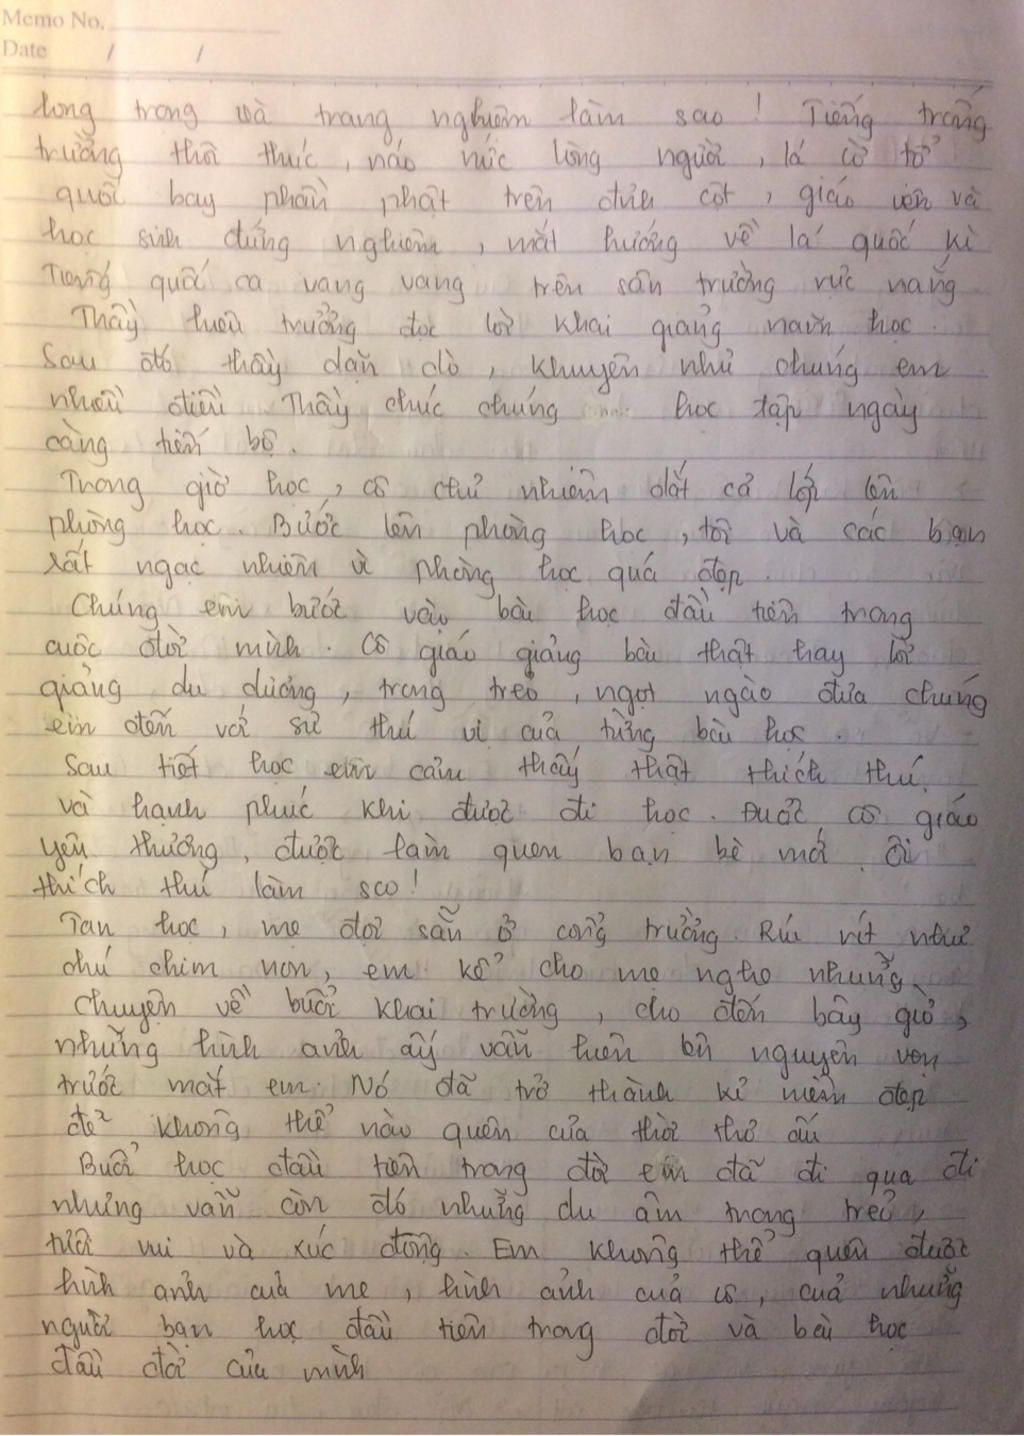 Memo No.
Date / /
long trong và trang nghiêm làm sao ! Tiếng trống
trường thôi thúc , náo nức lòng người , lá cờ tổ
quốc bay phần phật trên đỉnh cột , giáo viên và
học sinh đứng nghiêm , mắt hướng về lá quốc kì
Tiếng quốc ca vang vang trên sân trường rực nắng
Thầy hiệu trưởng đọc lời khai giảng năm học .
Sau đó thầy dặn dò , khuyên nhủ chúng em
nhiều điều Thầy chúc chúng học tập ngày
càng tiến bộ .
Trong giờ học , cô chủ nhiệm dắt cả lớp lên
phòng học . Bước lên phòng học , tôi và các bạn
rất ngạc nhiên vì phòng học quá đẹp .
Chúng em bước vào bài học đầu tiên trong
cuộc đời mình . Cô giáo giảng bài thật hay lời
giảng du dương , trong trẻo , ngọt ngào đưa chúng
em đến với sự thú vị của từng bài học .
Sau tiết học em cảm thấy thật thích thú
và hạnh phúc khi được đi học . Được cô giáo
yêu thương , được làm quen bạn bè mới . Ôi
thích thú làm sco !
Tan học , mẹ đợi sẵn ở cổng trường . Ríu rít như
chú chim non , em kể cho mẹ nghe những
chuyện về buổi khai trường , cho đến bây giờ ,
những hình ảnh ấy vẫn hiện lên nguyên vẹn
trước mắt em . Nó đã trở thành kỉ niệm đẹp
để không thể nào quên của thời thơ ấu
Buổi học đầu tiên trong đời em đã đi qua đi
nhưng vẫn còn đó những dư âm trong trẻo ,
tươi vui và xúc động . Em không thể quên được
hình ảnh của mẹ , hình ảnh của cô , của những
người bạn học đầu tiên trong đời và bài học
đầu đời của mình